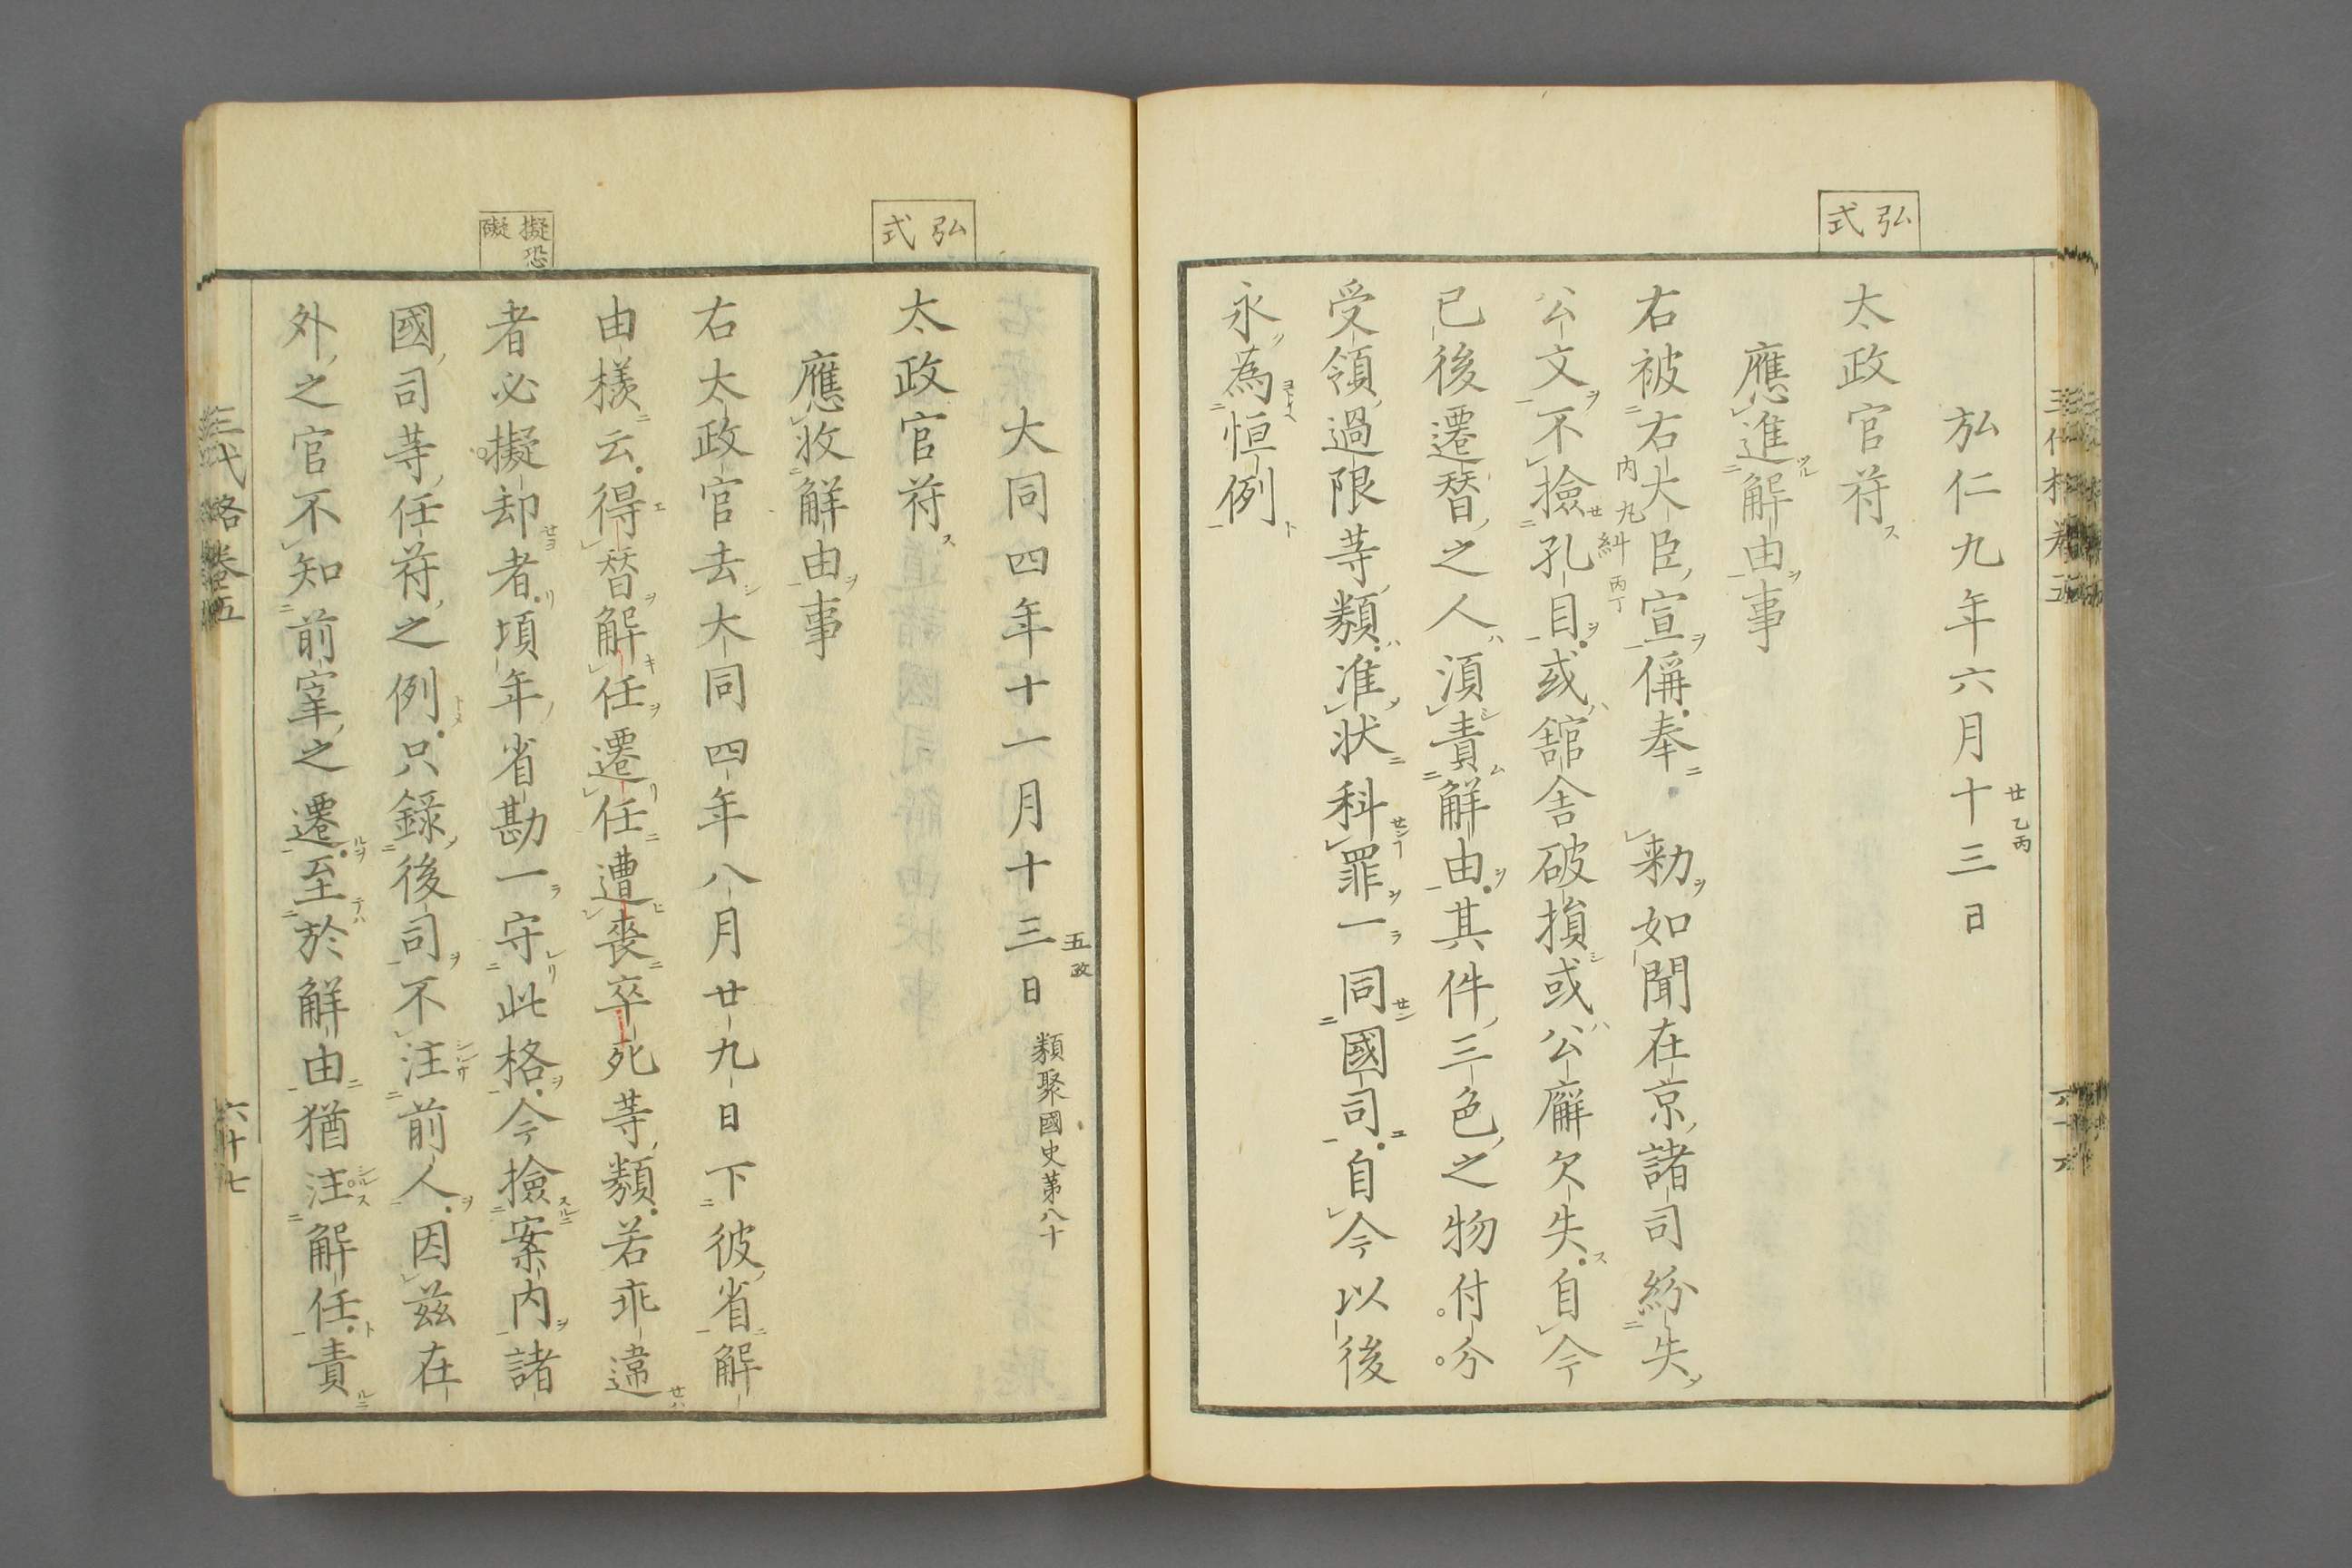 弘式
弘仁九年六月十三日
廿乙丙
太政官符ス
應進解由事
右被右大臣宣偁奉 勅如聞在京諸司紛失
内九糾丙丁
公文不撿孔目或舘舎破損或公廨欠失自今
已後遷替之人湏責解由其件三色之物付分
受領過限等類准状科罪一同國司自今以後
永為恒例
弘式
大同四年十一月十三日 類聚國史第八十
五政
太政官符ス
應收解由事
右太政官去大同四年八月廿九日下彼省解
由樣云得替解任遷任遭喪卒死等類若乖違
擬恐礙
者必擬却者頃年省勘一守此格今撿案内諸
國司等任符之例只錄後司不注前人因茲在
外之官不知前宰之遷至於解由猶注解任責
三代 格卷五
六十七